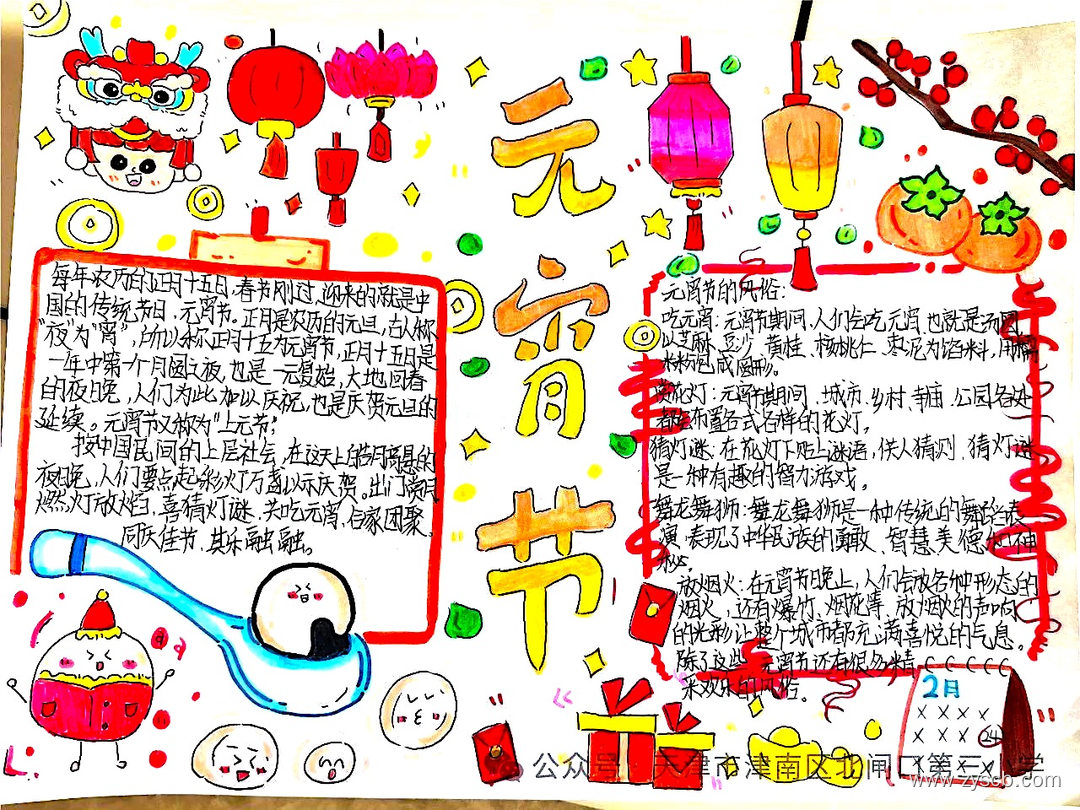 元宵节
每年农历的正月十五日,春节刚过,迎来的就是中
国的传统节日,元宵节。正月是农历的元旦,古人称
"夜"为"宵",所以称正月十五为元宵节,正月十五日是
一年中第一个月圆之夜,也是一元复始,大地回春
的夜晚,人们为此加以庆祝,也是庆贺元旦的
延续。元宵节又称为"上元节"
按中国民间的上层社会,在这天上皓月高悬的
夜晚,人们要点起彩灯万盏以示庆贺。出门赏月
燃灯放焰,喜猜灯谜,共吃元宵,合家团聚
同庆佳节,其乐融融。
元宵节的风俗:
吃元宵:元宵节期间,人们会吃元宵,也就是汤圆
以芝麻、豆沙、黄桂、核桃仁、枣泥为馅料,用糯
米粉包成圆形。
花灯:元宵节期间、城市、乡村、寺庙、公园各处
都会布置各式各样的花灯。
猜灯谜:在花灯下贴上谜语,供人猜测,猜灯谜
是一种有趣的智力游戏。
舞龙舞狮:舞龙舞狮是一种传统的舞蹈表
演,表现了中华民族的勇敢、智慧、美德和神
秘。
放烟火:在元宵节晚上,人们会放各种形态的
烟火,还有爆竹、烟花等,放烟火的声响
的光彩让整个城市都充满喜悦的气息。
除了这些,元宵节还有很多精
采欢乐的风俗。
2月
24
公众号 · 天津市津南区北闸口第三小学
www.zyscb.com